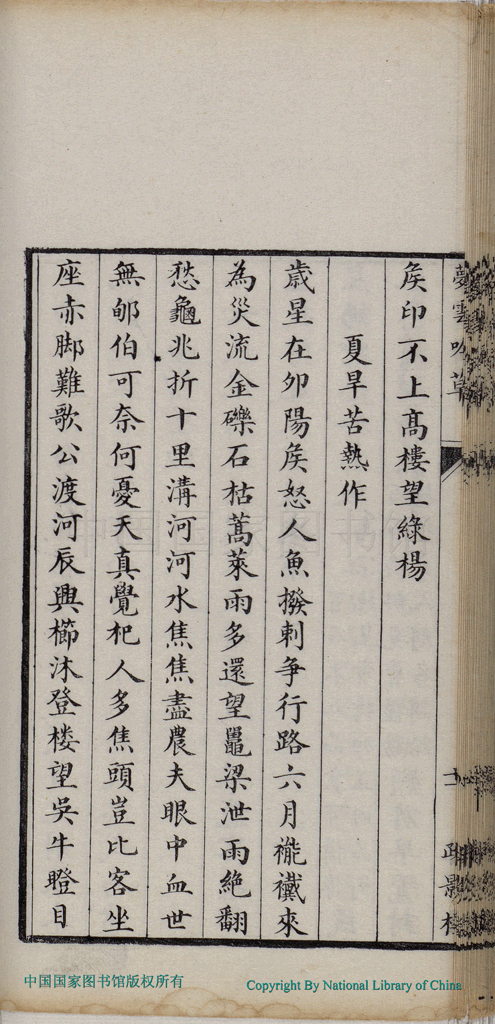 夢雲吟草
矦印不上高樓望綠楊
夏旱苦熱作
歲星在卯陽矦怒人魚撥剌争行路六月褦襶來
為災流金礫石枯蒿萊雨多還望鼉梁泄雨絶翻
愁龜兆折十里溝河河水焦焦盡農夫眼中血世
無邮伯可奈何憂天真覺杞人多焦頭豈比客坐
座赤脚難歌公渡河辰興櫛沐登楼望吳牛瞪目
中国国家图书馆版权所有
Copyright By National Library of China